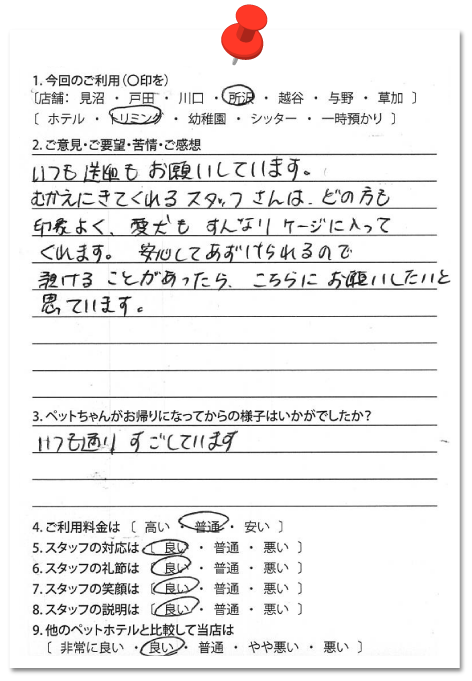 1. 今回のご利用(〇印を)
〔店舗: 見沼 ・ 戸田 ・ 川口 ・ 所沢 ・ 越谷 ・ 与野 ・ 草加 〕
〔 ホテル ・ トリミング ・ 幼稚園 ・ シッター ・ 一時預かり 〕
2. ご意見・ご要望・苦情・ご感想
いつも送迎もお願いしています。
むかえにきてくれるスタッフさんは、どの方も
印象よく、愛犬もすんなりケージに入って
くれます。安心してあずけられるので
預けることがあったら、こちらにお願いしたいと
思ています。
3. ペットちゃんがお帰りになってからの様子はいかがでしたか?
いつも通りすごしています
4. ご利用料金は 〔 高い ・ 普通 ・ 安い 〕
5. スタッフの対応は 〔 良い ・ 普通 ・ 悪い 〕
6. スタッフの礼節は 〔 良い ・ 普通 ・ 悪い 〕
7. スタッフの笑顔は 〔 良い ・ 普通 ・ 悪い 〕
8. スタッフの説明は 〔 良い ・ 普通 ・ 悪い 〕
9. 他のペットホテルと比較して当店は
〔 非常に良い ・ 良い ・ 普通 ・ やや悪い ・ 悪い 〕